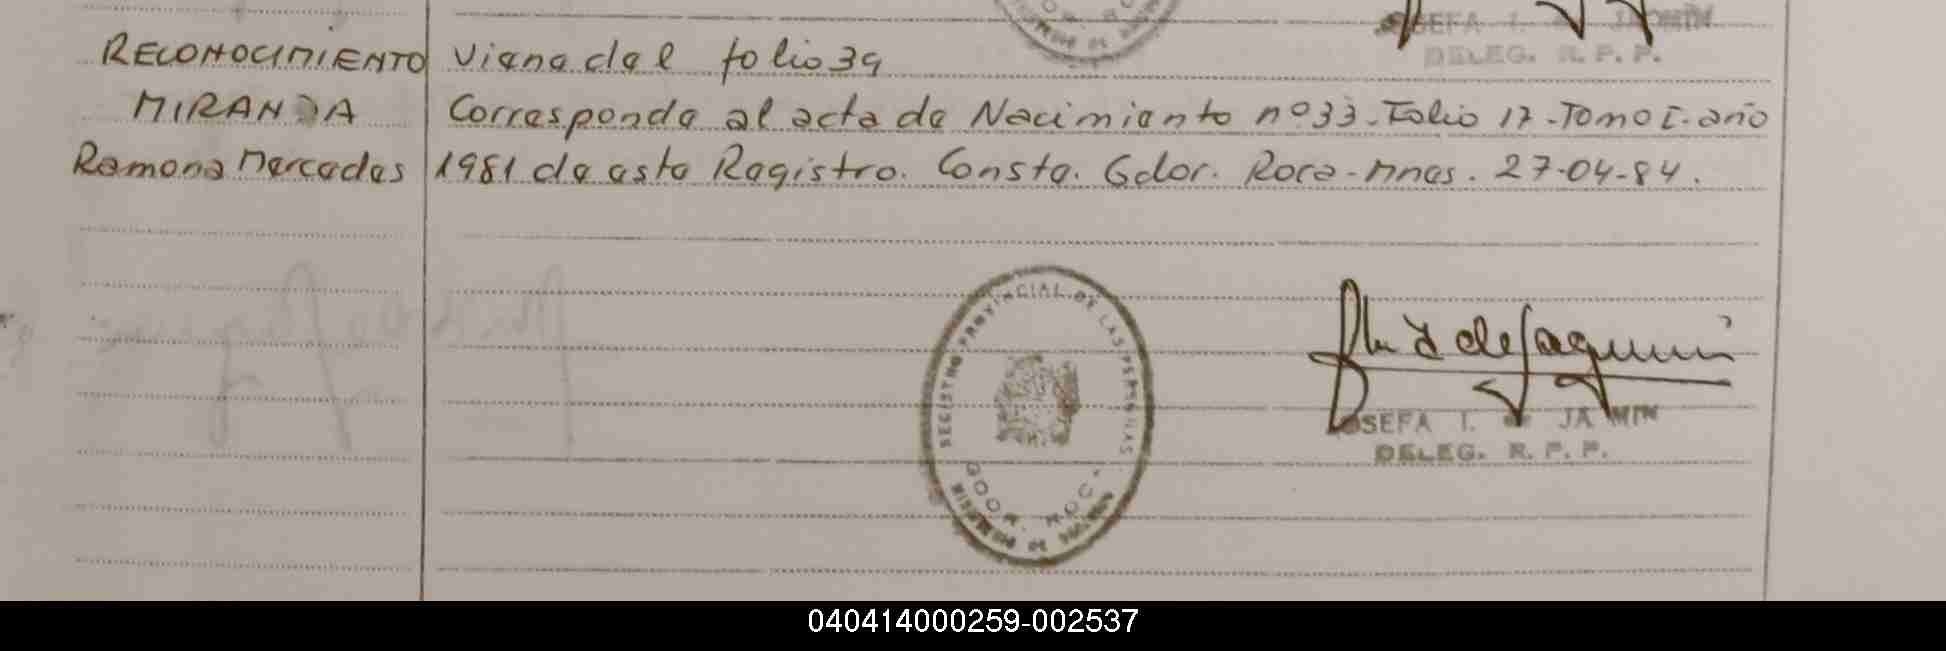 SEFA I. JAQMIN
DELEG. R. P. P.
RECONOCIMIENTO Viene del folio 39
MIRANDA Corresponde al acta de Nacimiento nº 33-Folio 17-Tomo I-año
Ramona Mercedes 1981 de este Registro. Conste. Gdor. Roca-Mnes. 27-04-84.
REGISTRO PROVINCIAL DE LAS PERSONAS
GDOR. ROCA
MINISTERIO DE GOBIERNO
OSEFA I. JA MIN
DELEG. R. P. P.
040414000259-002537